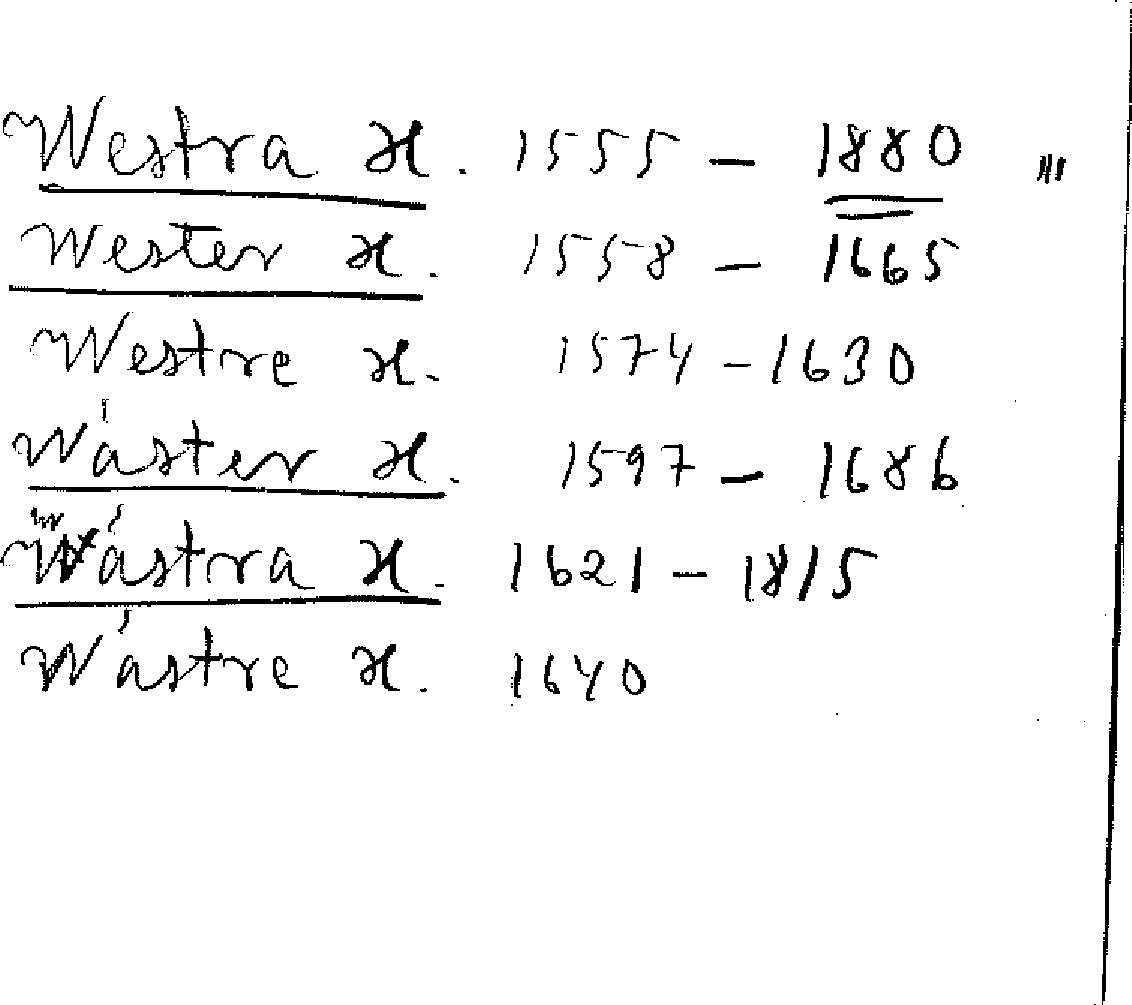 Westra H. 1555 - 1880 "'
Wester H. 1558 - 1665
Westre H. 1574 - 1630
Wáster H. 1597 - 1686
Wástra H. 1621 - 1815
Wástre H. 1640